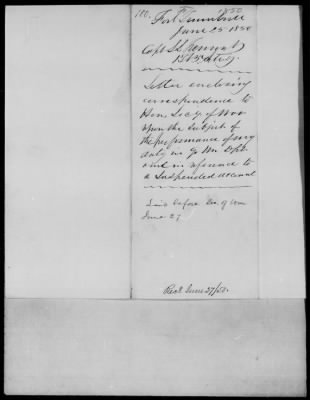 180. 1850
Fort Trumbull
June 25 1850
Capt
Letter enclosing
correspondence to
Hon. Secy of War
upon the subject of
the performance of my
duty in Qr Mr Dept
and in reference to
a Suspended account
Laid before Sec. of War
June 27
Recd June 27/50.